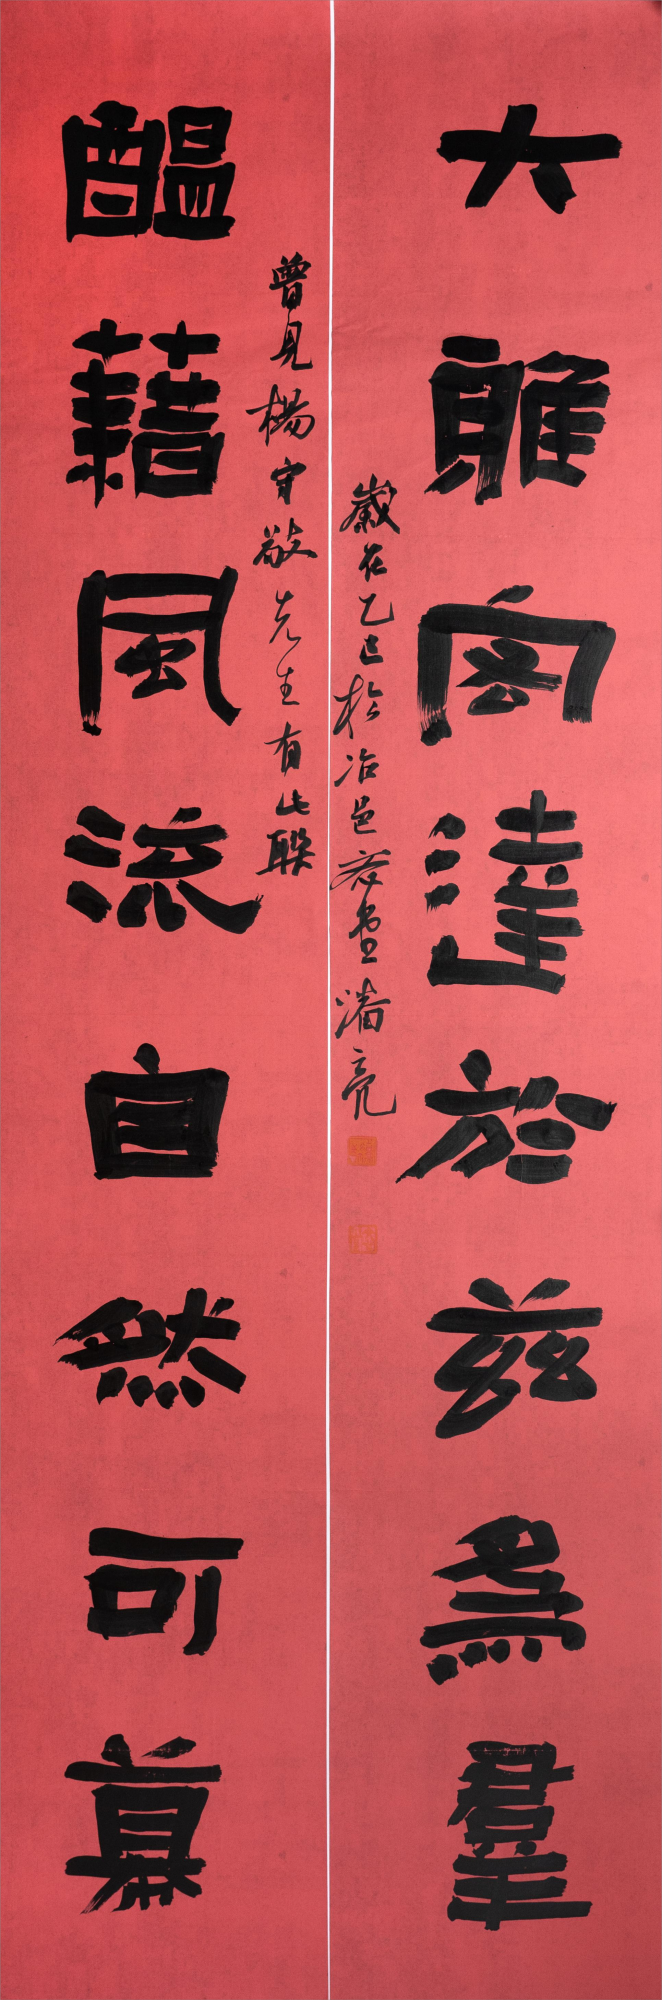 大雅宏達於茲為羣
歲在乙巳於冶邑堂潘亮
曾見楊守敬先生有此聯
醖藉風流自然可慕